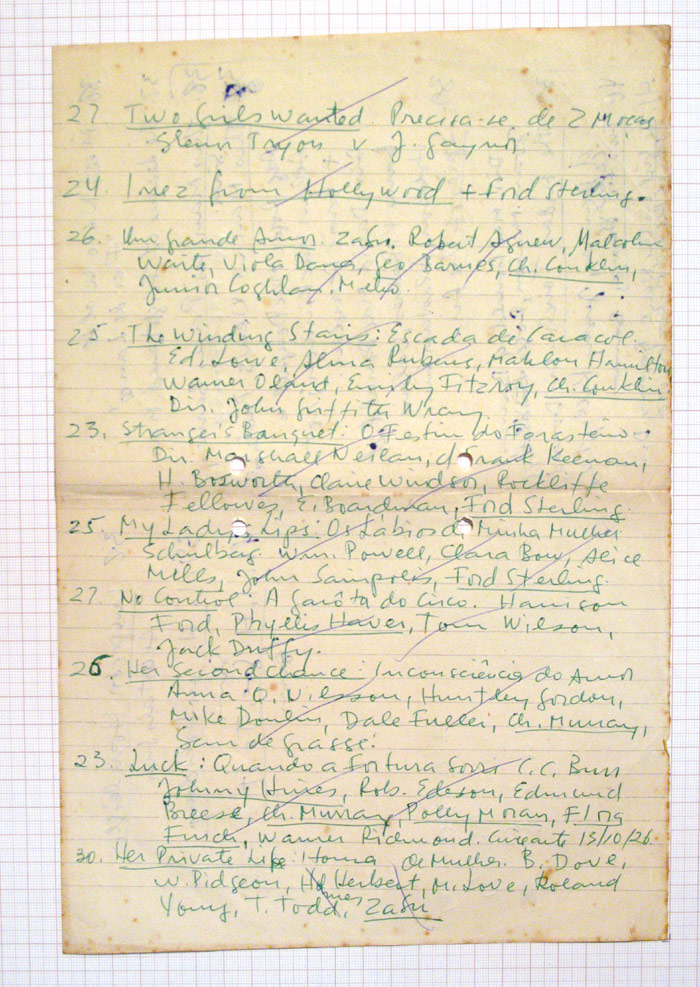 27. Two Girls Wanted. Precisa-se de 2 Moças
Glenn Tryon v. J. Gaynor
24. Inez from Hollywood + Ford Sterling.
26. Um grande Amor. ZaSu. Robert Agnew, Malcolm
Waite, Viola Dana, Geo Barnes, Ch. Conklin,
Junior Coghlan. Metro.
25. The Winding Stairs: Escada de Caracol.
Ed. Lowe, Alma Rubens, Mahlon Hamilton
Warner Oland, Emily Fitzroy, Ch. Conklin
Dir. John Griffith Wray.
23. Stranger's Banquet: O Festim do Forasteiro
Dir. Marshall Neilan, Frank Keenan,
H. Bosworth, Claire Windsor, Rockliffe
Fellowes, E. Boardman, Ford Sterling.
25. My Lady's Lips: Os Lábios de Minha Mulher
Schulberg. Wm. Powell, Clara Bow, Alice
Mills, John Sampolis, Ford Sterling.
27. No Control: A Garôta do Circo. Harrison
Ford, Phyllis Haver, Tom Wilson,
Jack Duffy.
26. Her Second Chance: Inconsciência do Amor
Anna Q. Nilsson, Huntley Gordon,
Mike Donlin, Dale Fuller, Ch. Murray,
Sam de Grasse.
23. Luck: Quando a Fortuna Sorri C.C. Burr
Johnny Hines, Rob. Edeson, Edmund
Breese, Ch. Murray, Polly Moran, Flora
Finch, Warner Richmond. 13/10/26.
30. Her Private Life: de Mulher. B. Dove,
W. Pidgeon, Herbert, M. Love, Roland
Young, T. Todd, ZaSu